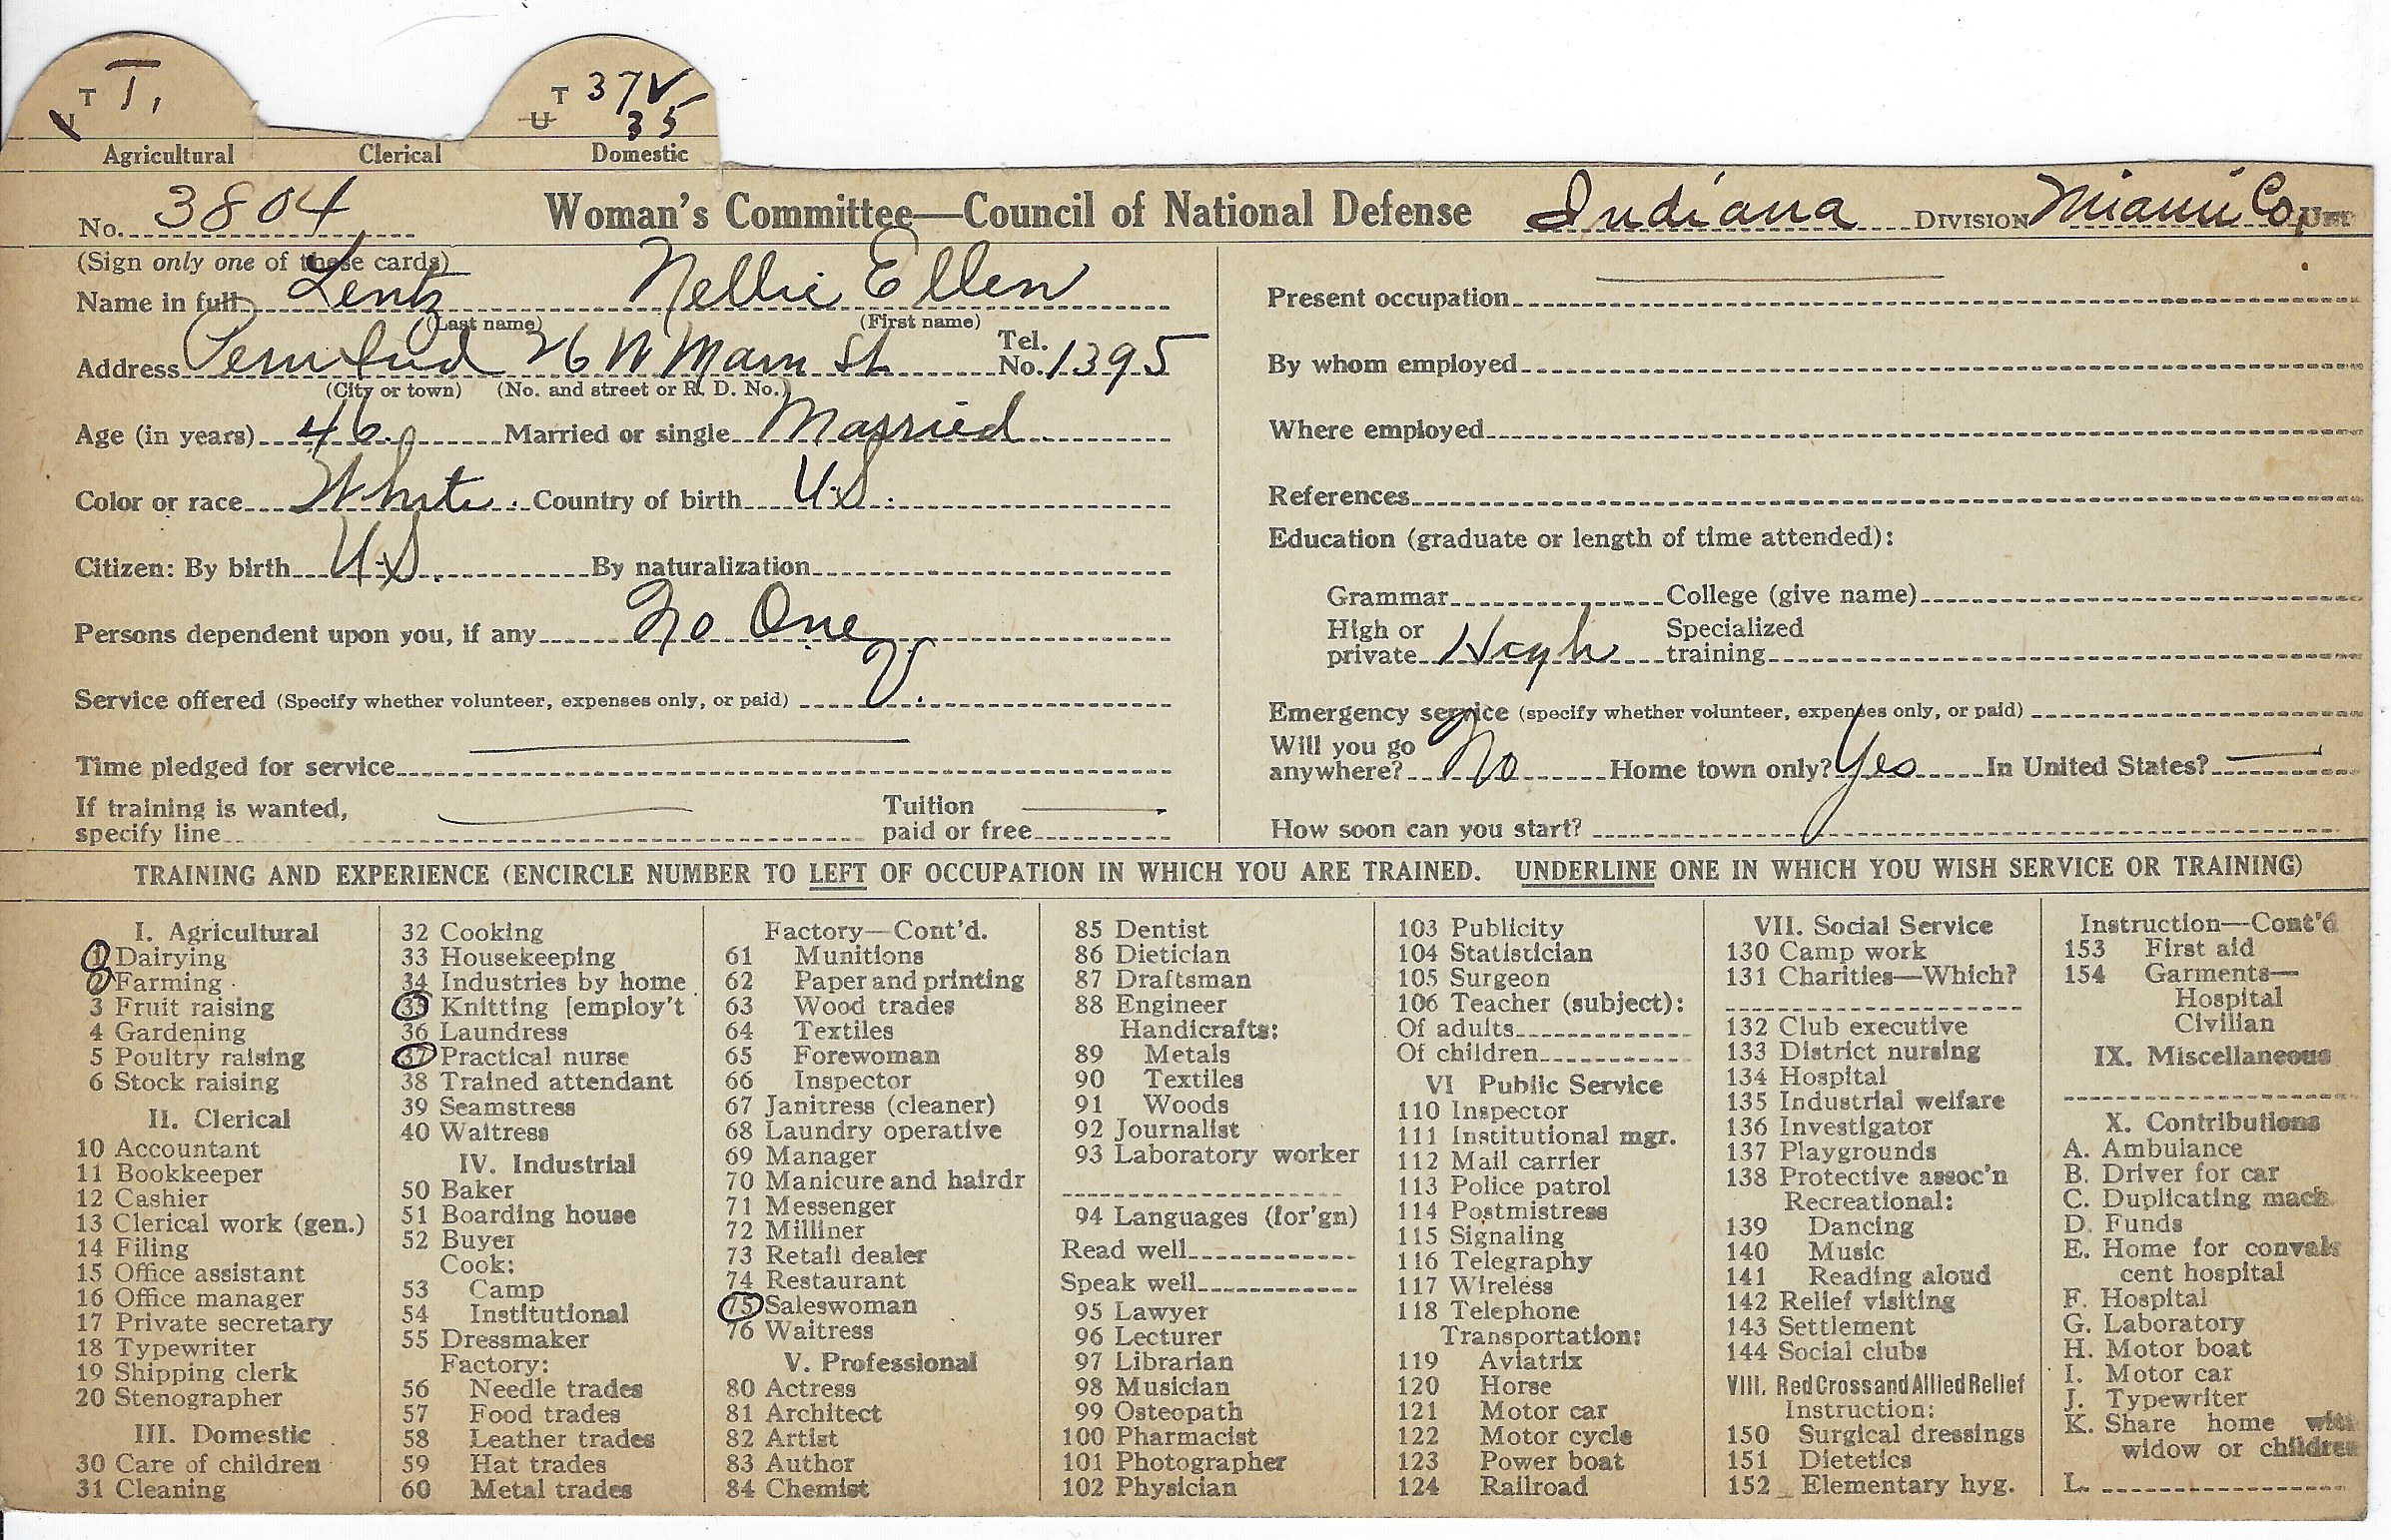 T T, T 37V
U 35
Agricultural Clerical Domestic
No. 3804 Woman's Committee—Council of National Defense Indiana DIVISION Miami Co, UNIT
(Sign only one of these cards)
Name in full Lentz Nellie Ellen
(Last name) (First name)
Address Peru Ind 26 W Main St Tel. No. 1395
(City or town) (No. and street or R. D. No.)
Age (in years) 46. Married or single Married
Color or race White. Country of birth U.S.
Citizen: By birth U.S. By naturalization
Persons dependent upon you, if any No One
Service offered (Specify whether volunteer, expenses only, or paid) V.
Time pledged for service
If training is wanted, specify line
Tuition paid or free
Present occupation
By whom employed
Where employed
References
Education (graduate or length of time attended):
Grammar College (give name)
High or private High Specialized training
Emergency service (specify whether volunteer, expenses only, or paid)
Will you go anywhere? No Home town only? Yes In United States?
How soon can you start?
TRAINING AND EXPERIENCE (ENCIRCLE NUMBER TO LEFT OF OCCUPATION IN WHICH YOU ARE TRAINED. UNDERLINE ONE IN WHICH YOU WISH SERVICE OR TRAINING)
I. Agricultural
1 Dairying
2 Farming
3 Fruit raising
4 Gardening
5 Poultry raising
6 Stock raising
II. Clerical
10 Accountant
11 Bookkeeper
12 Cashier
13 Clerical work (gen.)
14 Filing
15 Office assistant
16 Office manager
17 Private secretary
18 Typewriter
19 Shipping clerk
20 Stenographer
III. Domestic
30 Care of children
31 Cleaning
32 Cooking
33 Housekeeping
34 Industries by home
35 Knitting [employ't
36 Laundress
37 Practical nurse
38 Trained attendant
39 Seamstress
40 Waitress
IV. Industrial
50 Baker
51 Boarding house
52 Buyer
Cook:
53 Camp
54 Institutional
55 Dressmaker
Factory:
56 Needle trades
57 Food trades
58 Leather trades
59 Hat trades
60 Metal trades
Factory—Cont'd.
61 Munitions
62 Paper and printing
63 Wood trades
64 Textiles
65 Forewoman
66 Inspector
67 Janitress (cleaner)
68 Laundry operative
69 Manager
70 Manicure and hairdr
71 Messenger
72 Milliner
73 Retail dealer
74 Restaurant
75 Saleswoman
76 Waitress
V. Professional
80 Actress
81 Architect
82 Artist
83 Author
84 Chemist
85 Dentist
86 Dietician
87 Draftsman
88 Engineer
Handicrafts:
89 Metals
90 Textiles
91 Woods
92 Journalist
93 Laboratory worker
94 Languages (for'gn)
Read well
Speak well
95 Lawyer
96 Lecturer
97 Librarian
98 Musician
99 Osteopath
100 Pharmacist
101 Photographer
102 Physician
103 Publicity
104 Statistician
105 Surgeon
106 Teacher (subject):
Of adults
Of children
VI Public Service
110 Inspector
111 Institutional mgr.
112 Mail carrier
113 Police patrol
114 Postmistress
115 Signaling
116 Telegraphy
117 Wireless
118 Telephone
Transportation:
119 Aviatrix
120 Horse
121 Motor car
122 Motor cycle
123 Power boat
124 Railroad
VII. Social Service
130 Camp work
131 Charities—Which?
132 Club executive
133 District nursing
134 Hospital
135 Industrial welfare
136 Investigator
137 Playgrounds
138 Protective assoc'n
Recreational:
139 Dancing
140 Music
141 Reading aloud
142 Relief visiting
143 Settlement
144 Social clubs
VIII. Red Cross and Allied Relief
Instruction:
150 Surgical dressings
151 Dietetics
152 Elementary hyg.
Instruction—Cont'd
153 First aid
154 Garments—
Hospital
Civilian
IX. Miscellaneous
X. Contributions
A. Ambulance
B. Driver for car
C. Duplicating mach.
D. Funds
E. Home for convales
cent hospital
F. Hospital
G. Laboratory
H. Motor boat
I. Motor car
J. Typewriter
K. Share home with
widow or children
L.